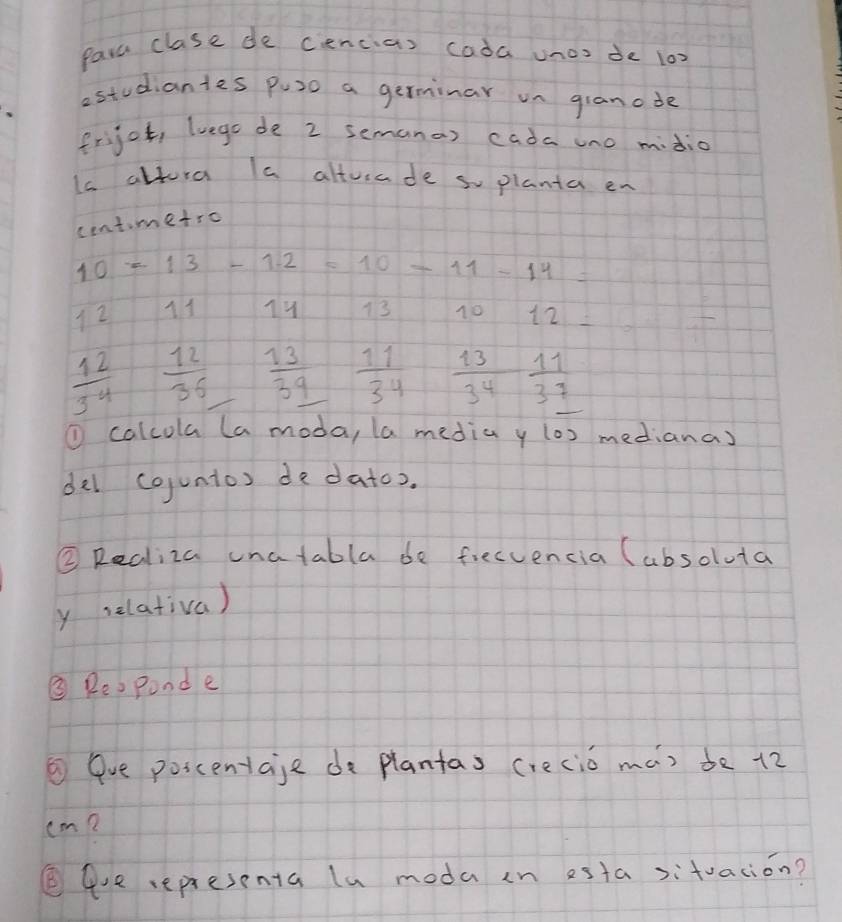 para clase de ciencias cada unos de los
estudiantes puso a germinar un grano de
frijol, luego de 2 semanas cada uno midio
la altura la altura de su planta en
centimetro
10 - 13 - 12 - 10 - 11 - 14 =
12 11 14 13 10 12 =
12 12 13 11 13 11
34 36 39 34 34 37
① calcola la moda, la media y los medianas
del cojuntos de datos.
② Realiza una tabla de frecuencia (absoluta
y relativa)
③ Responde
Ⓐ Que porcentaje de plantas creció más de 12
cm?
Ⓑ Que representa la moda en esta situación?